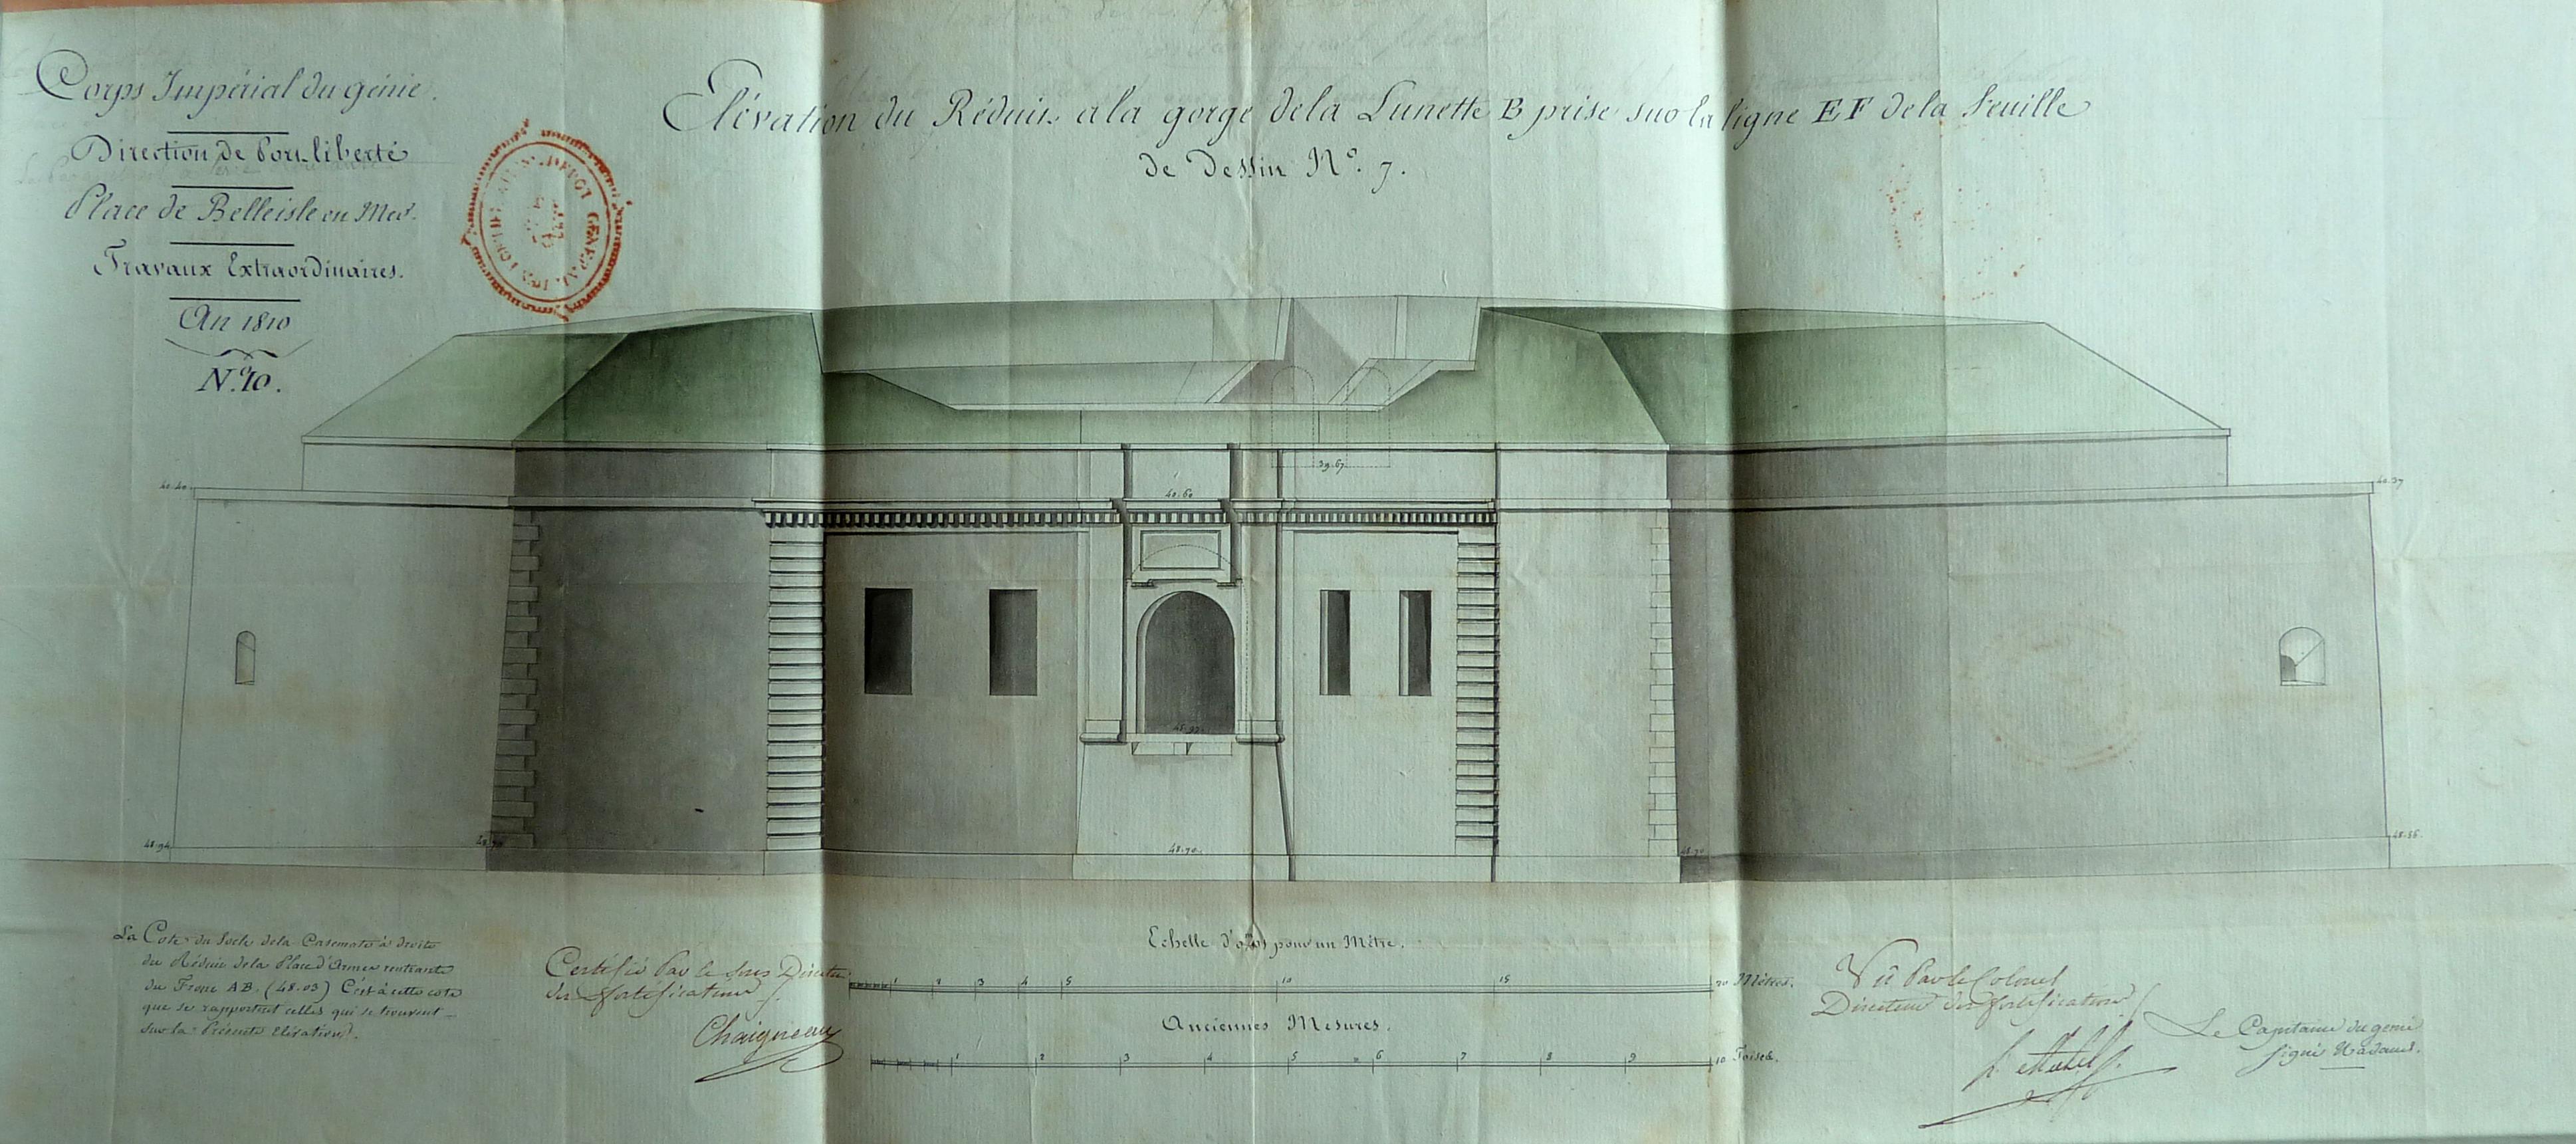 Corps Impérial du génie.
Direction de Port-liberté
Place de Belleisle en Mer.
Travaux Extraordinaires.
An 1810
N.º 10.
Elévation du Réduit a la gorge de la Lunette B prise sur la ligne EF de la feuille
de Dessin Nº. 7.
DEPOT GENERAL DES
39.67
40.40
40.60
40.37
48.94
48.70
48.70
48.86
La Cote du Socle de la Casemate à droite
du Réduit de la Place d'Armes rentrante
du Front AB. (48.03) C'est à cette cote
que se rapportent celles qui se trouvent
sur la Présente Elévation.
Certifié Par le Sous Directeur
des fortifications
Chaigneau
Echelle pour un Mètre.
1 2 3 4 5 10 15 20 Mètres.
Anciennes Mesures.
1 2 3 4 5 6 7 8 9 10 Toises.
Vû Par le Colonel
Directeur des fortifications
Le Capitaine du génie
signé